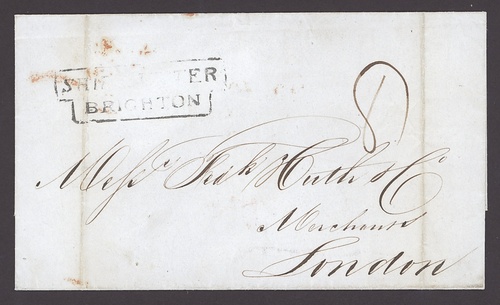 SHIP LETTER
BRIGHTON
8
Messrs Fredk Huth & Co
Merchants
London